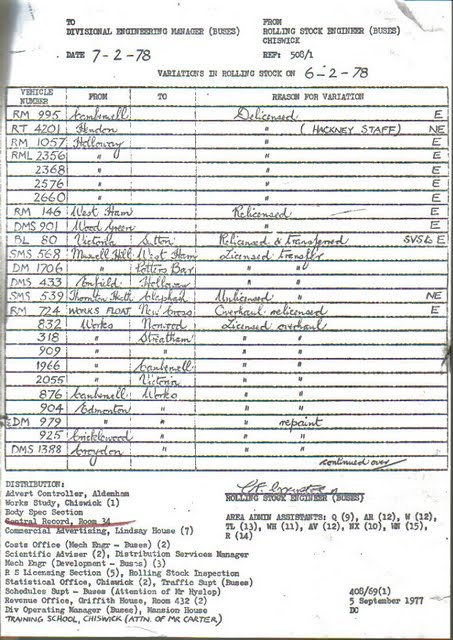 TO FROM
DIVISIONAL ENGINEERING MANAGER (BUSES) ROLLING STOCK ENGINEER (BUSES)
CHISWICK
DATE 7-2-78 REF: 508/1
VARIATIONS IN ROLLING STOCK ON 6-2-78
VEHICLE NUMBER FROM TO REASON FOR VARIATION
RM 995 Camberwell Delicensed E
RT 4201 Hendon " (HACKNEY STAFF) NE
RM 1057 Holloway " E
RML 2356 " " E
2368 " " E
2576 " " E
2660 " " E
RM 146 West Ham Relicensed E
DMS 901 Wood Green " E
BL 80 Victoria Sutton Relicensed & Transferred SVSLs E
SMS 568 Muswell Hill West Ham Licensed Transfer
DM 1706 " Potters Bar " "
DMS 433 Enfield Holloway " "
SMS 539 Thornton Heath Clapham Unlicensed " NE
RM 724 WORKS FLOAT New Cross Overhaul relicensed E
832 Works Norwood Licensed overhaul
318 " Streatham " "
909 " " " "
1966 " Camberwell " "
2055 " Victoria " "
876 Camberwell Works " "
904 Edmonton " " "
DM 979 " " " repaint
925 Cricklewood " " "
DMS 1388 Croydon " " "
continued over
DISTRIBUTION:
Advert Controller, Aldenham
Works Study, Chiswick (1)
Body Spec Section
Central Record, Room 34
Commercial Advertising, Lindsay House (7)
ROLLING STOCK ENGINEER (BUSES)
AREA ADMIN ASSISTANTS: Q (9), AR (12), W (12),
TL (13), WH (11), AV (12), NX (10), WN (15),
R (14)
Costs Office (Mech Engr - Buses) (2)
Scientific Adviser (2), Distribution Services Manager
Mech Engr (Development - Buses) (3)
R S Licensing Section (5), Rolling Stock Inspection
Statistical Office, Chiswick (2), Traffic Supt (Buses)
Schedules Supt - Buses (Attention of Mr Hyslop)
Revenue Office, Griffith House, Room 432 (2)
Div Operating Manager (Buses), Mansion House
TRAINING SCHOOL, CHISWICK (ATTN. OF MR CARTER)
408/69(1)
5 September 1977
DC